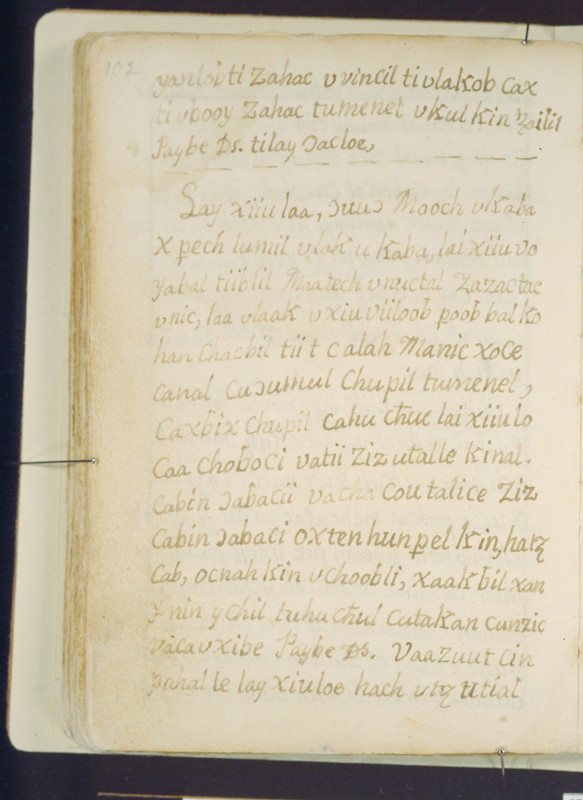 102
yanlobti Zahac v vincil ti vlakob Cax
ti vbooy Zahac tumenel vkul kin ꜩailil
Paybe Ds. tilay ɔacloe,
Lay xiiu laa, ɔuuɔ Mooch vkaba
x pech lumil vlak u kaba, lai xiiu vo
yabal tiiblil Maatech vnuctal zazactac
vnic, laa vlaak vxiu viiloob poob bal ko
han Chacbil tii t calah Manic xoce
canal Cuɔumul Chupil tumenel,
Caxbix Chupil cahu chuc lai xiiulo
Caa Choboci vatii Ziz utalle kinal.
Cabin ɔabacii vacha Cou talice Ziz
Cabin ɔabaci oxten hun pel kin, hatz
Cab, ocnah kin vchoobli, xaakbil xan
y nin ychil tuhu chul cutakan cunzic
vaca vxibe Paybe Ds. Vaazuut cin
pahal le lay xiuloe hach vtz utial